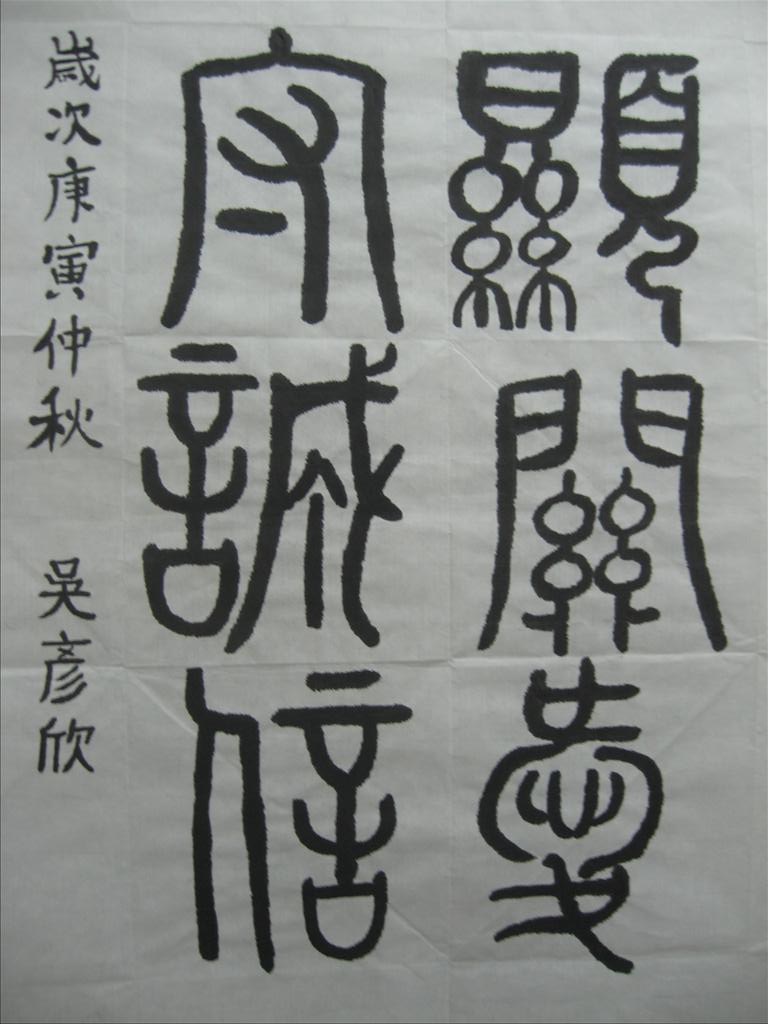 顯關愛
守誠信
歲次庚寅仲秋 吳彥欣